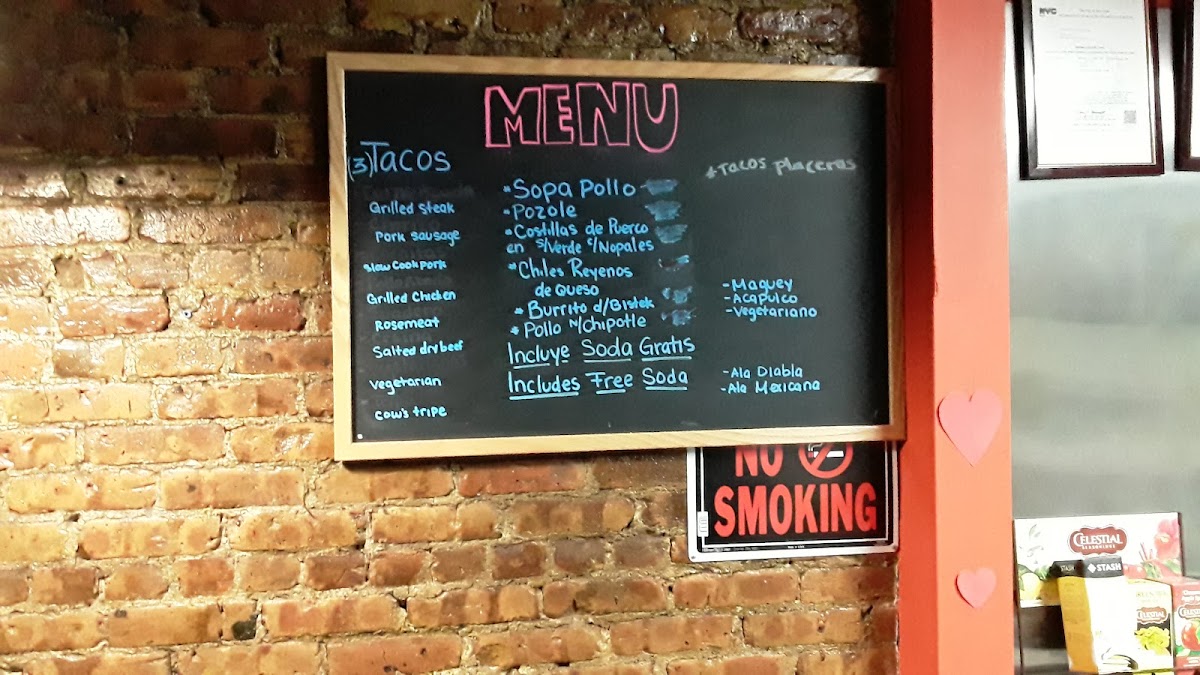 MENU
(3)Tacos
Grilled steak
Pork sausage
Slow Cook pork
Grilled Chicken
Rosemeat
Salted dry beef
Vegetarian
Cow's tripe
* Sopa Pollo
* Pozole
* Costillas de Puerco
en s/Verde c/Nopales
* Chiles Reyenos
de Queso
* Burrito d/Bistek
* Pollo n/chipotle
Incluye Soda Gratis
Includes Free Soda
* Tacos Placeros
- Maguey
- Acapulco
- Vegetariano
- Ala Diabla
- Ala Mexicana
NO
SMOKING
NYC
CELESTIAL
SEASONINGS
STASH
STASH
CELESTIAL